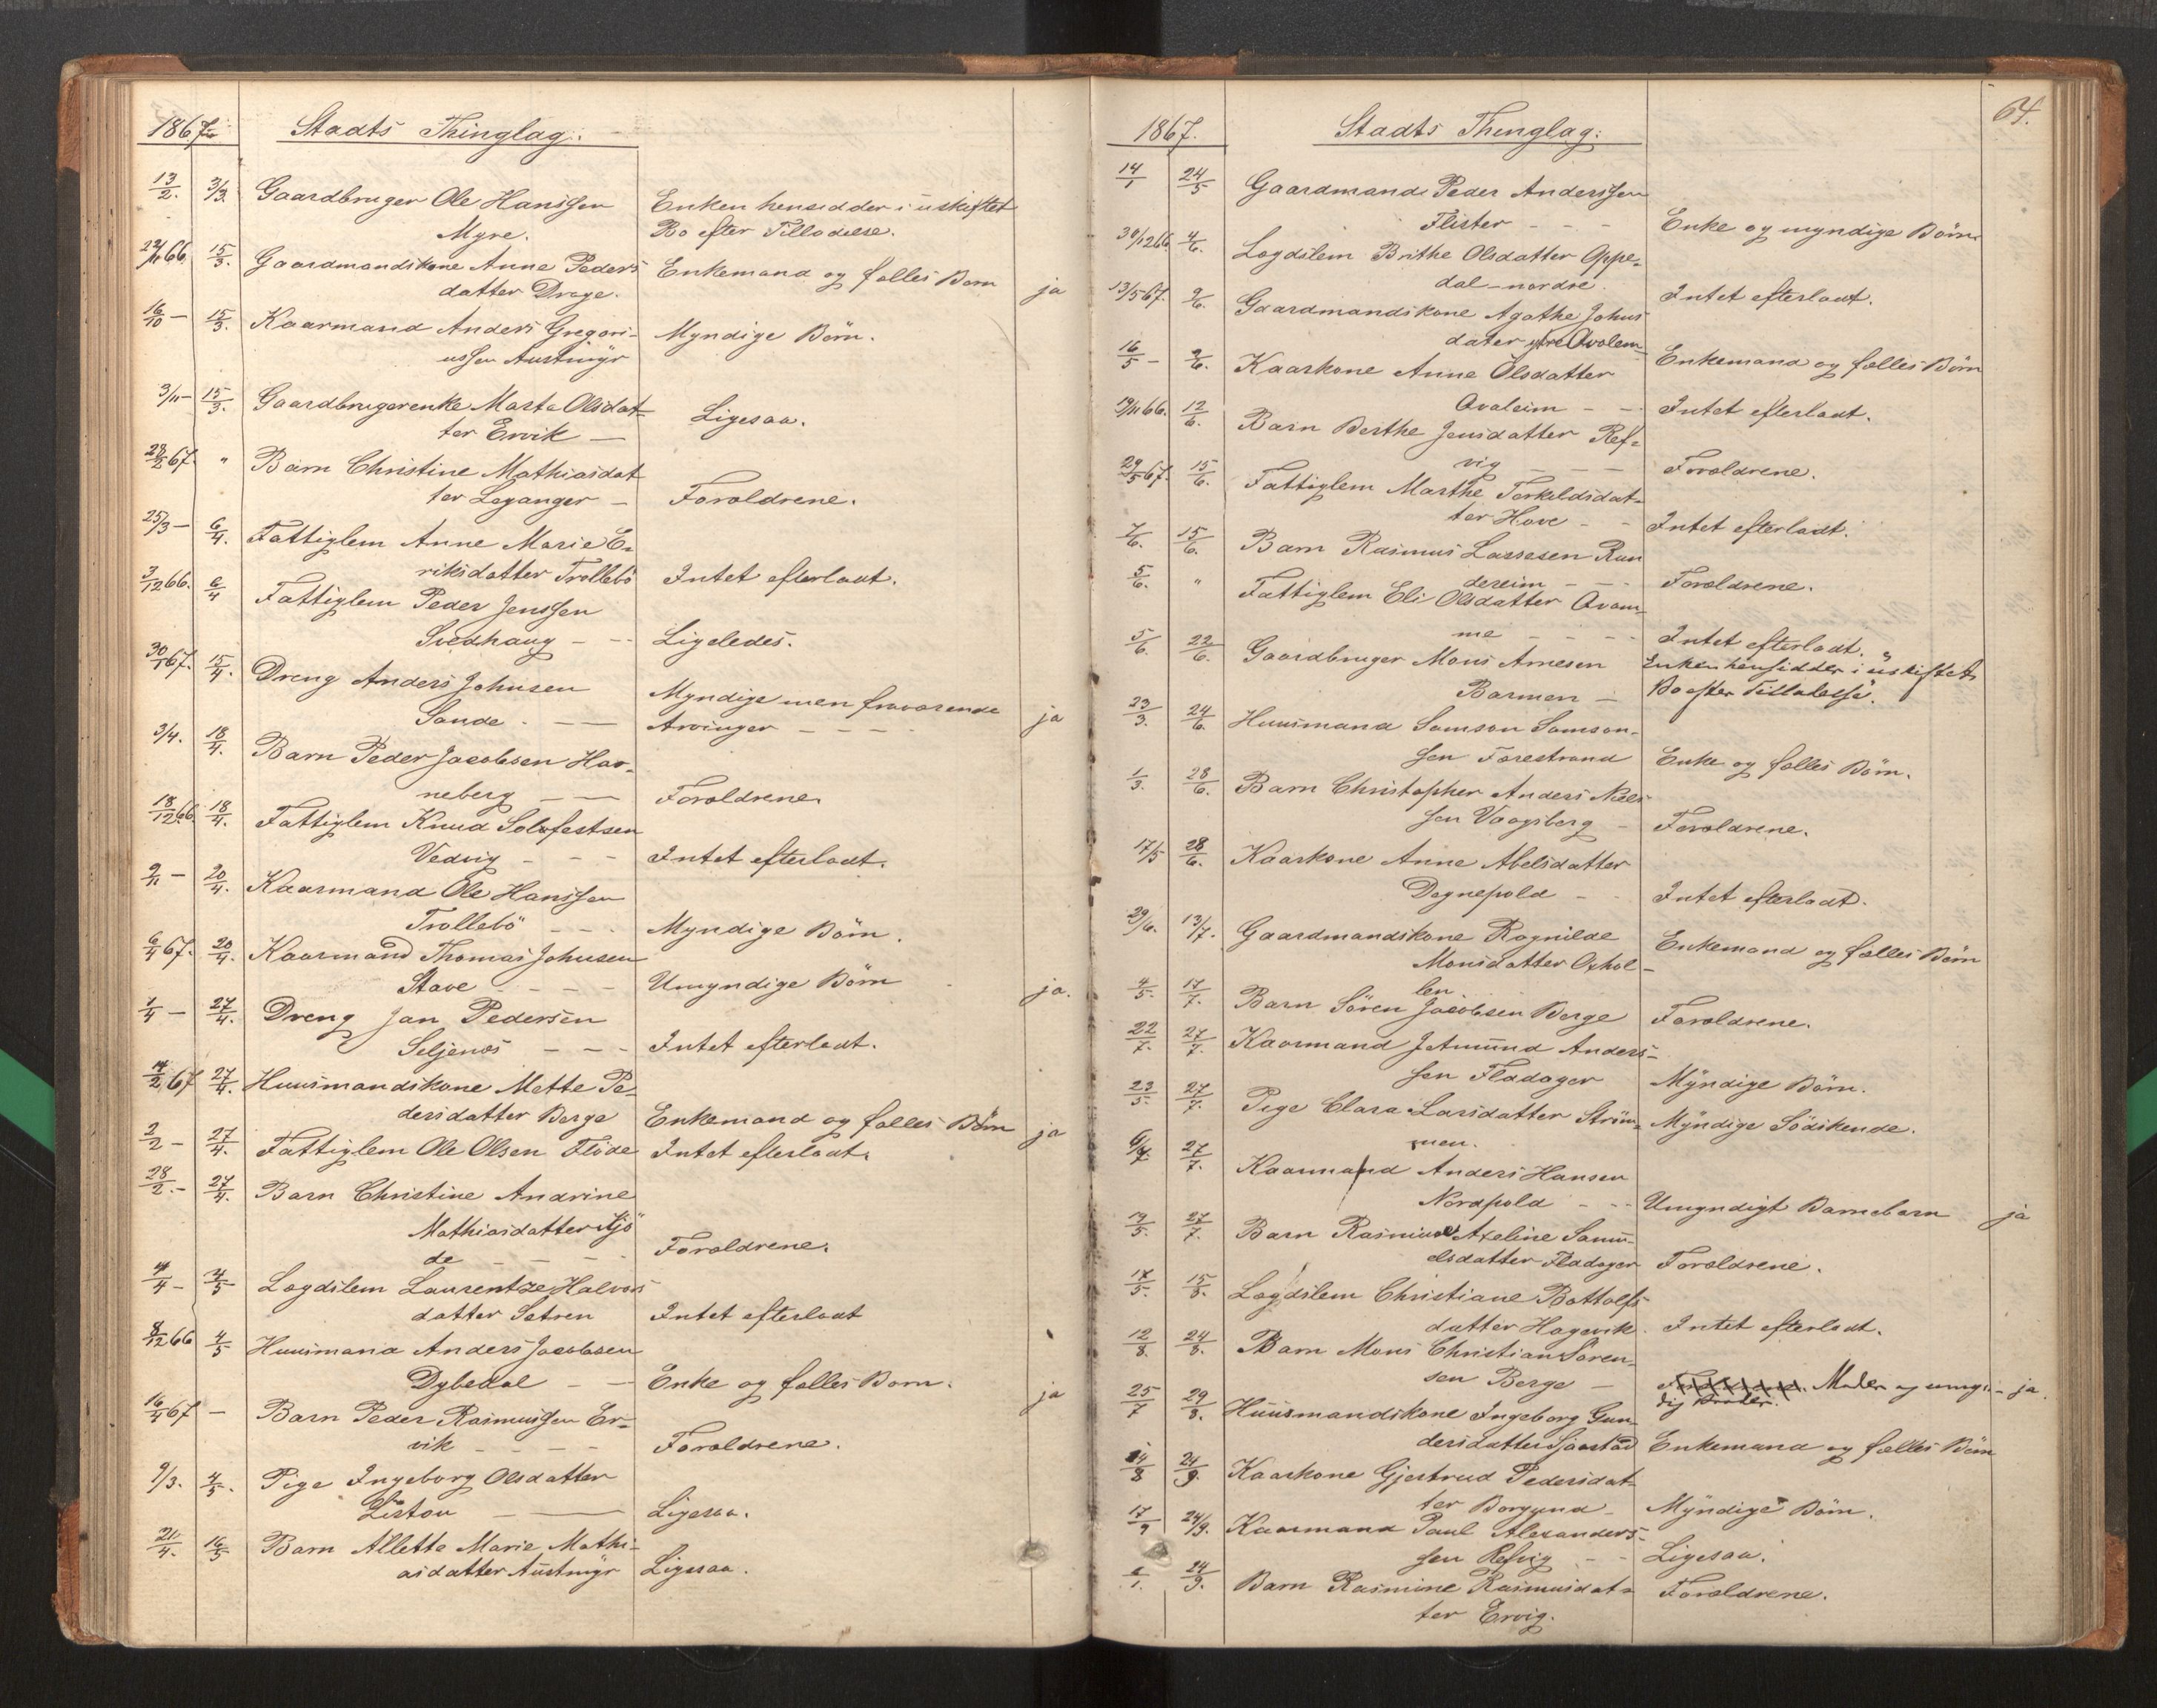 1867. Stadts Thinglag.
13/2. 3/3. Gaardbruger Ole Hanssen Enken hensidder i uskiftet
Myre. Bo efter Tilladelse.
15/3. Gaardmandskone Anne Peders Enkemand og fælles Børn ja
datter Drage.
16/10 – 15/3. Kaarmand Anders Gregori- Myndige Börn.
ussen Austmyr
3/11 – 15/3. Gaardbrugerenke Marta Olsdat-
ter Ervik — Ligesaa.
28/2 67. " Barn Christine Mathiasdat
ter Leganger — Forældrene.
25/3 – 6/4. Fattiglem Anne Marie E-
riksdatter Trollebö Intet efterladt.
3/12 66. 6/4 Fattiglem Peder Jenssen
Ligeledes.
30/1 67. 15/4. Dreng Anders Johnsen Myndige men fraværende ja
Sande — Arvinger – – –
3/4. 18/4. Barn Peder Jacobsen Hav-
neberg — Forældrene
18/12 66. 18/4. Fattiglem Knud Solofestsen
Vedvig – – – Intet efterladt.
9/11 – 20/4. Kaarmand Ole Hanssen
Trollebö – – – Myndige Börn.
6/4 67. 20/4. Kaarmand Thomas Johnsen
Stave – – – Umyndige Börn ja.
1/4 – 27/4. Dreng Jan Pedersen
Seljenæs – – – Intet efterladt.
14/2 67 27/4. Huusmandskone Mette Pe-
dersdatter Berge Enkemand og fælles Börn ja
2/2 – 27/4. Fattiglem Ole Olsen Flöde Intet efterladt.
28/2. – 27/4. Barn Christine Andrine
Mathiasdatter
de – – – Forældrene.
4/4 – 4/5 Lægdslem Laurentze Halvors
datter Sætren Intet efterladt
8/12 66 4/5 Huusmand Anders Jacobsen
Dybedal – – Enke og fælles Børn. ja
16/4 67 – Barn Peder Rasmussen Er-
vik – – – Forældrene.
9/3. 4/5. Pige Ingeborg Olsdatter
Listou — Ligesaa.
21/4. 16/5 Barn Allette Marie Mathi-
asdatter Austmyr Ligesaa.
64.
1867. Stadts Thinglag.
14/1 24/5 Gaardmand Peder Anderssen
Flister – – – Enke og myndige Börn
30/12 66. 4/6. Lægdslem Brithe Olsdatter Oppe-
dal – nordre. Intet efterladt.
13/5 67. 9/6. Gaardmandskone Agathe Johns
dater ytre Qvalem Enkemand og fælles Börn
16/5 – 9/6. Kaarkone Anne Olsdatter
Qvaleim – – Intet efterladt.
19/11 66. 12/6. Barn Berthe Jensdatter Ref-
vig – – – Forældrene.
29/5 67. 15/6. Fattiglem Marthe Terkeldsdat-
ter Hove – – Intet efterladt.
7/6. 15/6. Barn Rasmus Lassesen Run
dereim – – – Forældrene.
5/6. " Fattiglem Eli Olsdatter Qvam-
me – – – – Intet efterladt.
5/6. 22/6. Gaardbruger Mons Arnesen Enken hensidder i uskiftet
Barmen – Bo efter Tilladelse.
23/3. 24/6. Huusmand Samson Samson-
sen Forestrand Enke og fælles Börn.
1/3. 28/6. Barn Christopher Anders Niels
sen Vaagsberg – Forældrene.
17/5 28/6. Kaarkone Anne Abelsdatter
Degnepold – – Intet efterladt.
29/6. 13/7. Gaardmandskone Ragnilde Enkemand og fælles Börn
Monsdatter Oxhol-
len
4/5. 17/7. Barn Sören Jacobsen Berge Forældrene.
22/7. 27/7. Kaarmand Jetmund Anders-
sen Fladager Myndige Börn.
23/5 27/7. Pige Clara Larsdatter Ström- Myndige Södskende.
men.
6/7 27/7. Kaarmand Anders Hansen
Nordpold – – Umyndigt Barnebarn ja
19/5. 27/7. Barn Rasmine Axeline Samu-
elsdatter Fladager Forældrene.
17/5. 15/8. Lægdslem Christiane Bottolfs
datter Hagevik. Intet efterladt.
12/8. 24/8. Barn Mons Christian Sören-
sen Berge – Moder og umyn- ja.
dig Broder.
25/7 29/8. Huusmandskone Ingeborg Gun
dersdatter Sjaastad Enkemand og fælles Börn
24/9. Kaarkone Gjertrud Pedersdat-
ter Borgund – Myndige Börn.
17/9 24/9. Kaarmand Paul Alexanders-
sen Refvig – – Ligesaa.
6/1. 24/9. Barn Rasmine Rasmusdat- Forældrene.
ter Ervig.